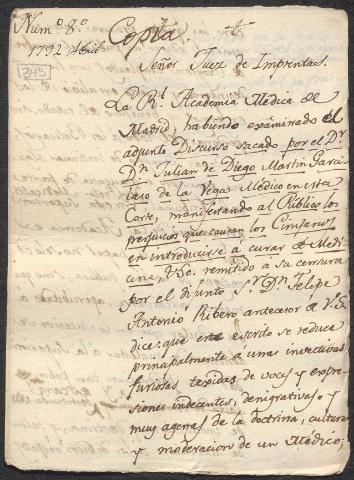 Num.º 8.º
1792 Abril
Copia. +
315
Señor Juez de Imprentas.
La R.l Academia Medica de
Madrid, habiendo exâminado el
adjunto Discurso sacado por el D.r
D.n Julian de Diego Martin Garci
laso de la Vega Médico en esta
Corte, manifestando al Público los
perjuicios que causan los Cirujanos
en introducirse a curar de Medi
cina, &c. remitido a su censura
por el difunto S.r D.n Felipe
Antonio Ribero antecesor de V.S.
dice: que este escrito se reduce
principalmente a unas invectivas
furiosas texidas de voces y expre
siones indecentes, denigrativas y
muy agenas de la doctrina, cultura
y moderacion de un Médico;